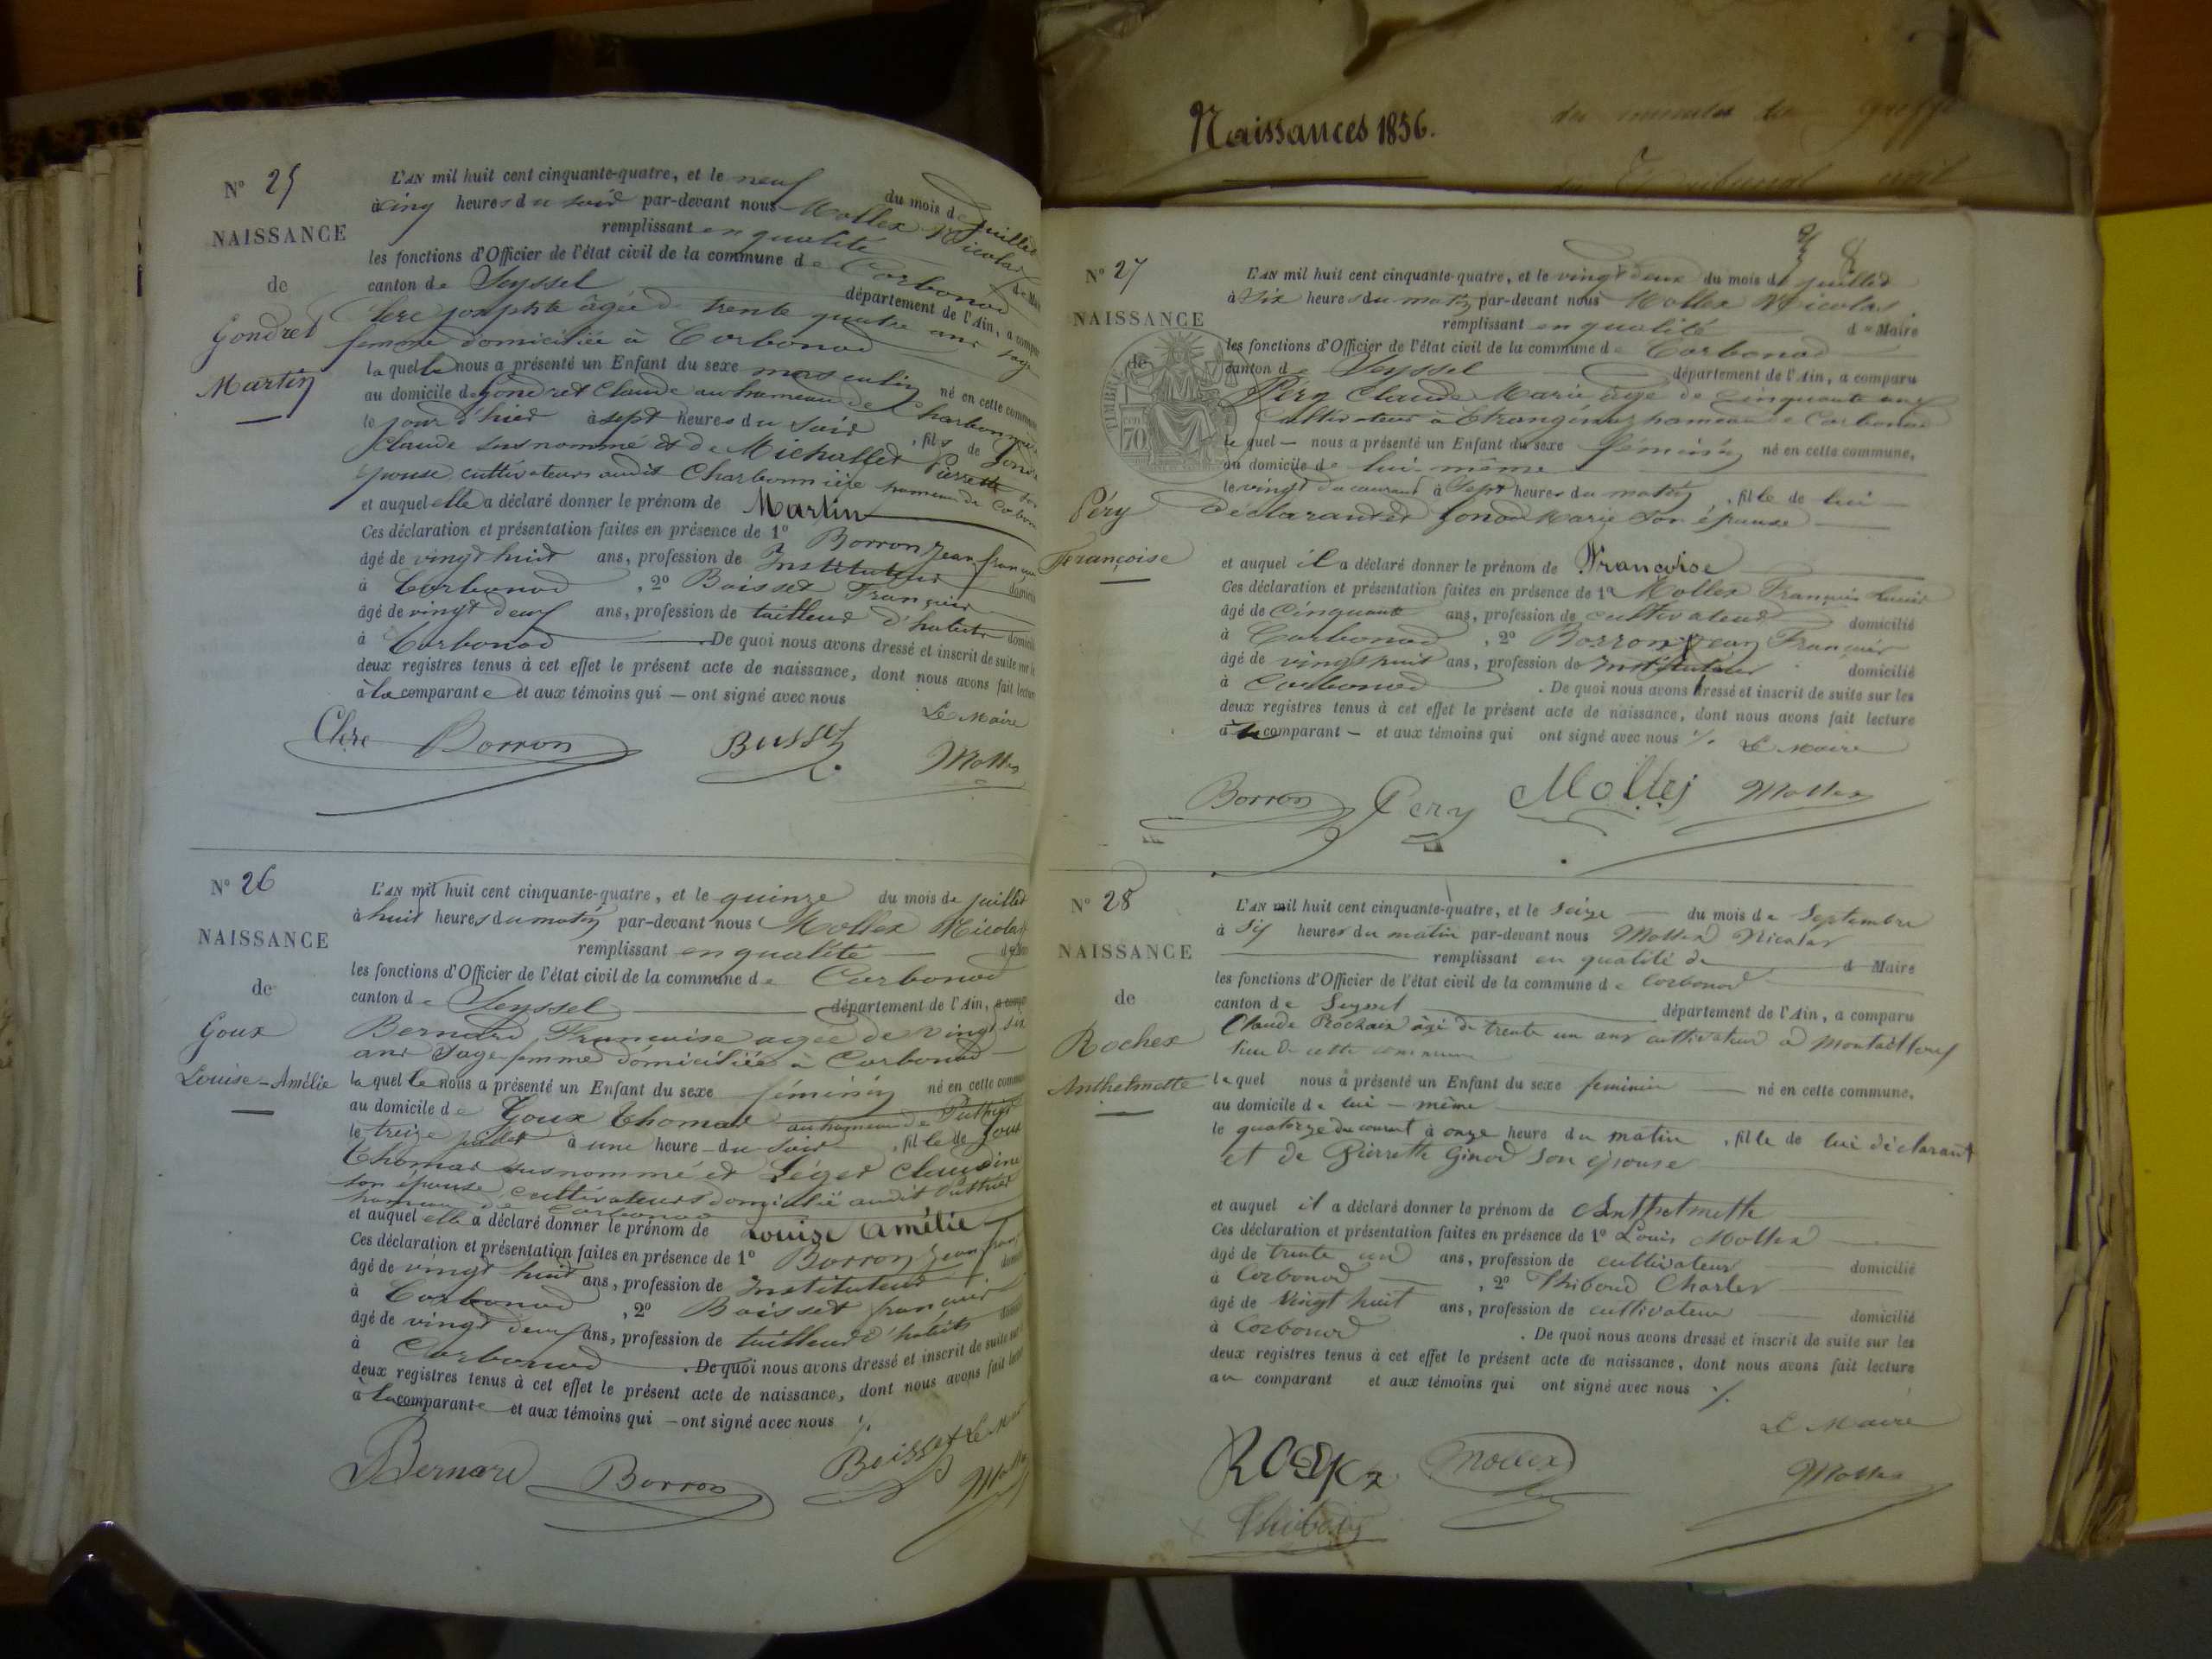 Naissances 1856.
N° 25
NAISSANCE
de
Gondret
Martin
L'AN mil huit cent cinquante-quatre, et le neuf du mois de juillet
à cinq heures du soir par-devant nous Mollex Nicolas
remplissant en qualité de Maire
les fonctions d'Officier de l'état civil de la commune de Corbonod
canton de Seyssel département de l'Ain, a comparu
Clerc josephte âgée de trente quatre ans sage
femme domiciliée à Corbonod
laquelle nous a présenté un Enfant du sexe masculin né en cette commune
au domicile de Gondret Claude au hameau de Charbonnière
le jour d'hier à sept heures du soir, fils de Gondret
Claude susnommé et de Michallet Pierrette son
épouse cultivateurs audit Charbonnière hameau de Corbonod
et auquel elle a déclaré donner le prénom de Martin
Ces déclaration et présentation faites en présence de 1° Borron Jean françois
âgé de vingt huit ans, profession de Instituteur domicilié
à Corbonod, 2° Boisset François
âgé de vingt deux ans, profession de tailleur d'habits domicilié
à Corbonod De quoi nous avons dressé et inscrit de suite sur les
deux registres tenus à cet effet le présent acte de naissance, dont nous avons fait lecture
à la comparante et aux témoins qui — ont signé avec nous
Le Maire
Clerc Borron Bussez Mollex
N° 26
NAISSANCE
de
Goux
Louise-Amélie
L'AN mil huit cent cinquante-quatre, et le quinze du mois de juillet
à huit heures du matin par-devant nous Mollex Nicolas
remplissant en qualité
les fonctions d'Officier de l'état civil de la commune de Corbonod
canton de Seyssel département de l'Ain, a comparu
Bernard Françoise agée de vingt six
ans sage-femme domiciliée à Corbonod
laquelle nous a présenté un Enfant du sexe féminin né en cette commune
au domicile de Goux Thomas au hameau de Puthier
le treize juillet à une heure du soir, fille de Goux
Thomas susnommé et Léger Claudine
son épouse, cultivateurs domicilié audit Puthier
hameau de Corbonod
et auquel elle a déclaré donner le prénom de Louise Amélie
Ces déclaration et présentation faites en présence de 1° Borron Jean franç
âgé de vingt huit ans, profession de Instituteur
à Corbonod, 2° Boisset françois
âgé de vingt deux ans, profession de tailleur d'habits
à Corbonod. De quoi nous avons dressé et inscrit de suite sur
deux registres tenus à cet effet le présent acte de naissance, dont nous avons fait lecture
à la comparante et aux témoins qui — ont signé avec nous %
Bernard Borron Boisset Le Maire
N° 27
NAISSANCE
de
TIMBRE
70
Péry
Françoise
L'AN mil huit cent cinquante-quatre, et le vingt deux du mois de juillet
à Six heures du matin par-devant nous Mollex Nicolas
remplissant en qualité de Maire
les fonctions d'Officier de l'état civil de la commune de Corbonod
canton de Seyssel département de l'Ain, a comparu
Péry Claude Marie âgé de cinquante ans
Cultivateur à hameau de Corbonod
lequel — nous a présenté un Enfant du sexe féminin né en cette commune,
au domicile de lui-même
le vingt du courant à Sept heures du matin, fille de lui
déclarant et Gonod Marie son épouse
et auquel il a déclaré donner le prénom de Françoise
Ces déclaration et présentation faites en présence de 1° Mollex François
âgé de Cinquante ans, profession de cultivateur domicilié
à Corbonod, 2° Borron Jean François
âgé de vingt huit ans, profession de Instituteur domicilié
à Corbonod. De quoi nous avons dressé et inscrit de suite sur les
deux registres tenus à cet effet le présent acte de naissance, dont nous avons fait lecture
comparant — et aux témoins qui ont signé avec nous %. Le Maire
Borron Pery Mollex Mollex
N° 28
NAISSANCE
de
Rochex
Anthelmette
L'AN mil huit cent cinquante-quatre, et le seize du mois de Septembre
à six heures du matin par-devant nous Mollex Nicolas
remplissant en qualité de d Maire
les fonctions d'Officier de l'état civil de la commune de Corbonod
canton de Seyssel département de l'Ain, a comparu
Claude Rochaix âgé de trente un ans cultivateur à
lieu de cette commune
lequel nous a présenté un Enfant du sexe feminin né en cette commune,
au domicile de lui-même
le quatorze du courant à onze heure du matin, fille de lui déclarant
et de Pierrette Ginod son épouse
et auquel il a déclaré donner le prénom de Anthelmette
Ces déclaration et présentation faites en présence de 1° Louis Mollex
âgé de trente un ans, profession de cultivateur domicilié
à Corbonod, 2° Thiboud Charles
âgé de Vingt huit ans, profession de cultivateur domicilié
à Corbonod. De quoi nous avons dressé et inscrit de suite sur les
deux registres tenus à cet effet le présent acte de naissance, dont nous avons fait lecture
au comparant et aux témoins qui ont signé avec nous %.
Le Maire
Mollex Mollex
Thiboud